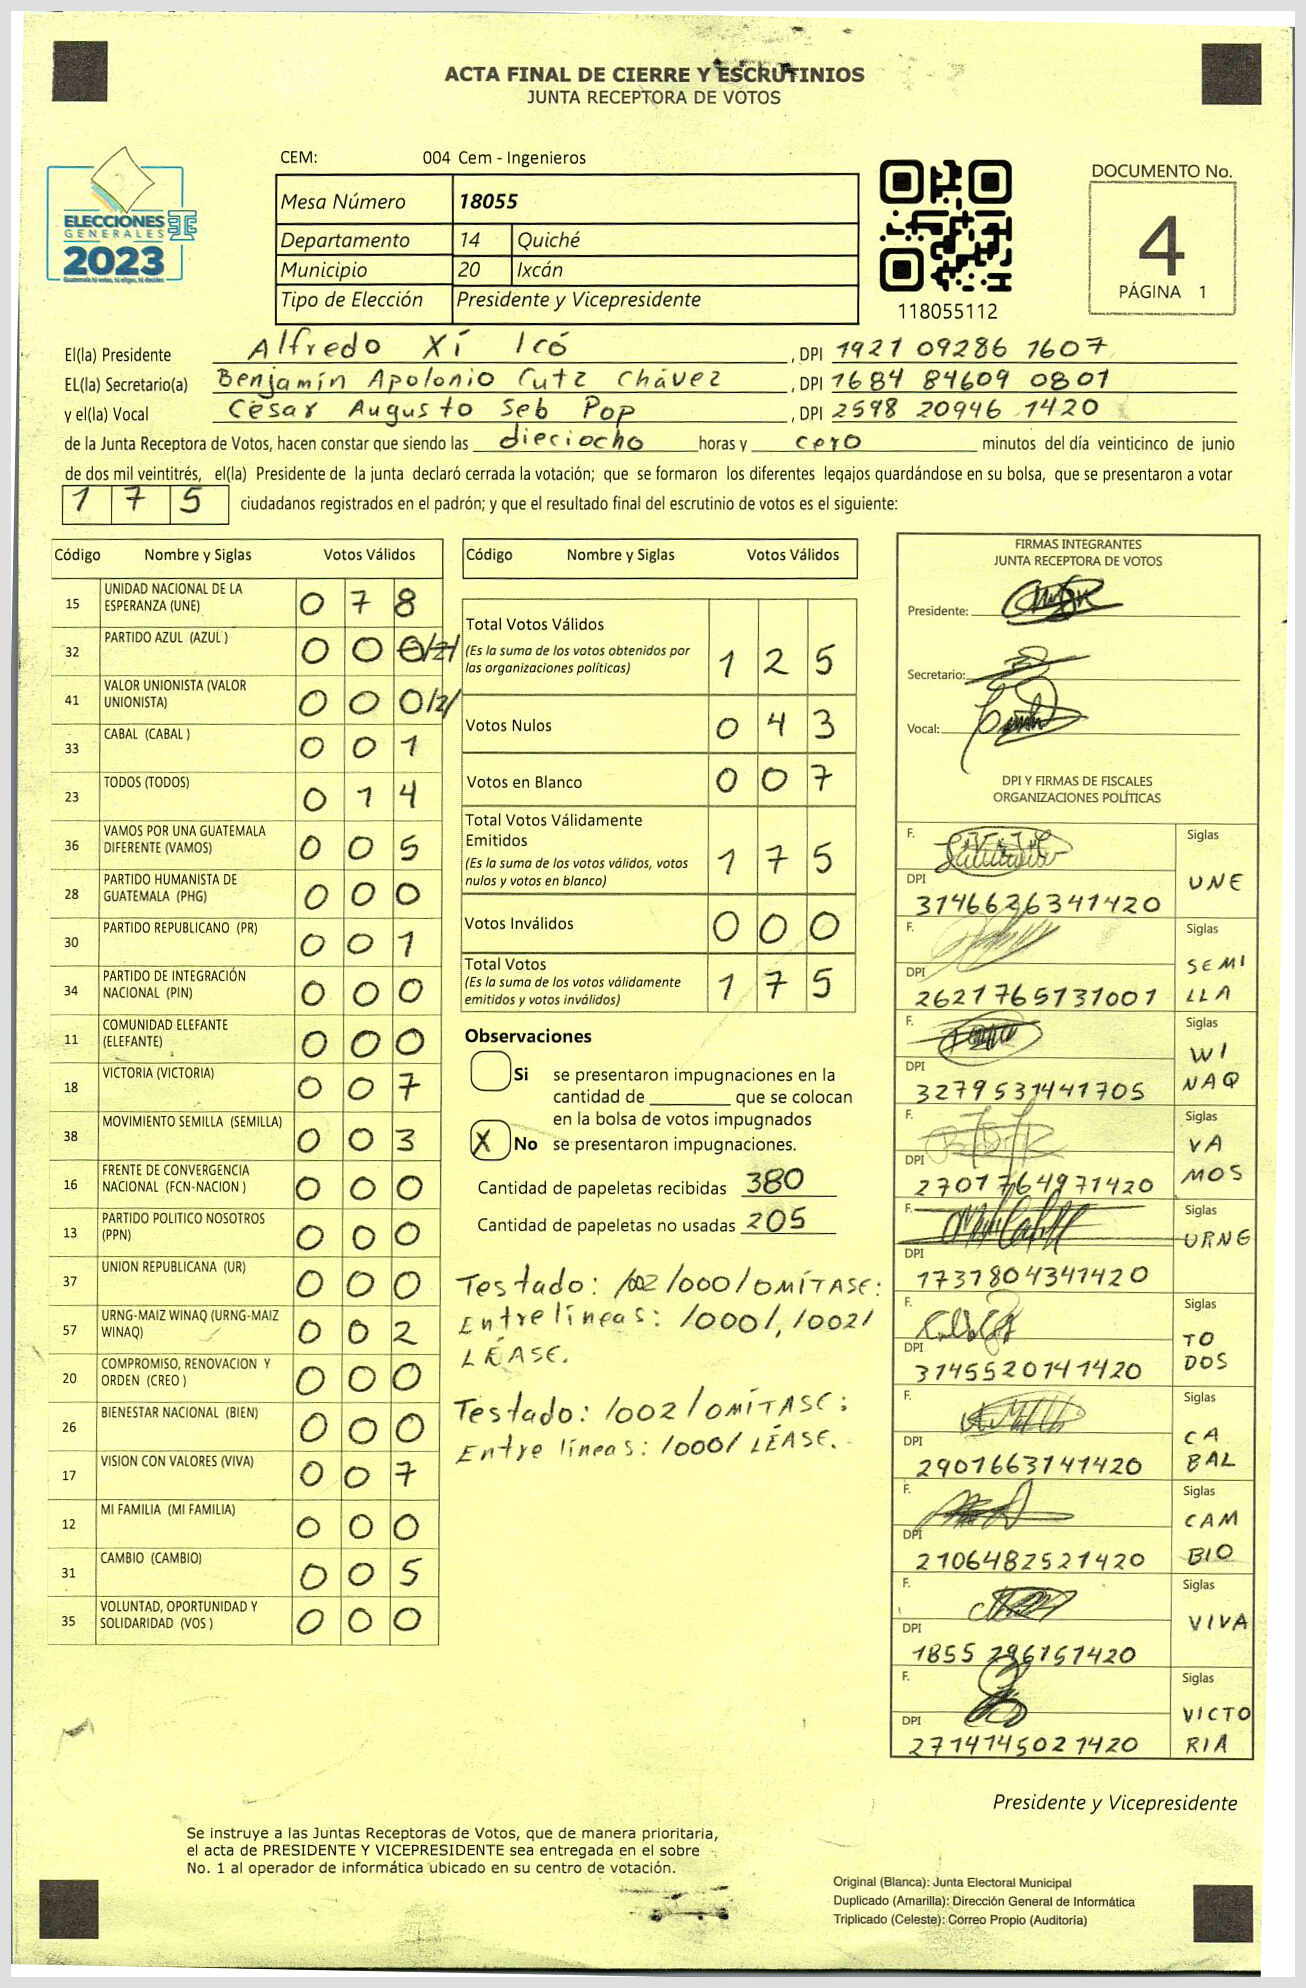 ACTA FINAL DE CIERRE Y ESCRUTINIOS
JUNTA RECEPTORA DE VOTOS
CEM: 004 Cem - Ingenieros
ELECCIONES
GENERALES
2023
Guatemala tú votas, tú eliges, tú decides
Mesa Número 18055
Departamento 14 Quiché
Municipio 20 Ixcán
Tipo de Elección Presidente y Vicepresidente
118055112
DOCUMENTO No.
4
PÁGINA 1
El(la) Presidente Alfredo Xí Icó, DPI 1921 09286 1607
EL(la) Secretario(a) Benjamín Apolonio Cutz Chávez, DPI 1684 84609 0801
y el(la) Vocal César Augusto Seb Pop, DPI 2598 20946 1420
de la Junta Receptora de Votos, hacen constar que siendo las dieciocho horas y cero minutos del día veinticinco de junio
de dos mil veintitrés, el(la) Presidente de la junta declaró cerrada la votación; que se formaron los diferentes legajos guardándose en su bolsa, que se presentaron a votar
175 ciudadanos registrados en el padrón; y que el resultado final del escrutinio de votos es el siguiente:
Código Nombre y Siglas Votos Válidos
15 UNIDAD NACIONAL DE LA ESPERANZA (UNE) 0 7 8
32 PARTIDO AZUL (AZUL ) 0 0 0/2/
41 VALOR UNIONISTA (VALOR UNIONISTA) 0 0 0/2/
33 CABAL (CABAL ) 0 0 1
23 TODOS (TODOS) 0 1 4
36 VAMOS POR UNA GUATEMALA DIFERENTE (VAMOS) 0 0 5
28 PARTIDO HUMANISTA DE GUATEMALA (PHG) 0 0 0
30 PARTIDO REPUBLICANO (PR) 0 0 1
34 PARTIDO DE INTEGRACIÓN NACIONAL (PIN) 0 0 0
11 COMUNIDAD ELEFANTE (ELEFANTE) 0 0 0
18 VICTORIA (VICTORIA) 0 0 7
38 MOVIMIENTO SEMILLA (SEMILLA) 0 0 3
16 FRENTE DE CONVERGENCIA NACIONAL (FCN-NACION ) 0 0 0
13 PARTIDO POLITICO NOSOTROS (PPN) 0 0 0
37 UNION REPUBLICANA (UR) 0 0 0
57 URNG-MAIZ WINAQ (URNG-MAIZ WINAQ) 0 0 2
20 COMPROMISO, RENOVACION Y ORDEN (CREO ) 0 0 0
26 BIENESTAR NACIONAL (BIEN) 0 0 0
17 VISION CON VALORES (VIVA) 0 0 7
12 MI FAMILIA (MI FAMILIA) 0 0 0
31 CAMBIO (CAMBIO) 0 0 5
35 VOLUNTAD, OPORTUNIDAD Y SOLIDARIDAD (VOS ) 0 0 0
Código Nombre y Siglas Votos Válidos
Total Votos Válidos 1 2 5
(Es la suma de los votos obtenidos por
las organizaciones políticas)
Votos Nulos 0 4 3
Votos en Blanco 0 0 7
Total Votos Válidamente
Emitidos 1 7 5
(Es la suma de los votos válidos, votos
nulos y votos en blanco)
Votos Inválidos 0 0 0
Total Votos 1 7 5
(Es la suma de los votos válidamente
emitidos y votos inválidos)
Observaciones
Si se presentaron impugnaciones en la
cantidad de ________ que se colocan
en la bolsa de votos impugnados
X No se presentaron impugnaciones.
Cantidad de papeletas recibidas 380
Cantidad de papeletas no usadas 205
Testado: /002/000/OMÍTASE:
Entre líneas: /000/, /002/
LÉASE.
Testado: /002/OMÍTASE:
Entre líneas: /000/ LÉASE.
FIRMAS INTEGRANTES
JUNTA RECEPTORA DE VOTOS
Presidente:
Secretario:
Vocal:
DPI Y FIRMAS DE FISCALES
ORGANIZACIONES POLÍTICAS
F. Siglas
DPI UNE
3146626341420
F. Siglas
DPI SEMI
2621765131001 LLA
F. Siglas
DPI WI
3279531441705 NAQ
F. Siglas
DPI VA
2701764971420 MOS
F. Siglas
DPI URNG
1737804341420
F. Siglas
DPI TO
3145520141420 DOS
F. Siglas
DPI CA
2901663141420 BAL
F. Siglas
DPI CAM
2106482521420 BIO
F. Siglas
DPI VIVA
1855 296151420
F. Siglas
DPI VICTO
2714145021420 RIA
Presidente y Vicepresidente
Se instruye a las Juntas Receptoras de Votos, que de manera prioritaria,
el acta de PRESIDENTE Y VICEPRESIDENTE sea entregada en el sobre
No. 1 al operador de informática ubicado en su centro de votación.
Original (Blanca): Junta Electoral Municipal
Duplicado (Amarilla): Dirección General de Informática
Triplicado (Celeste): Correo Propio (Auditoría)